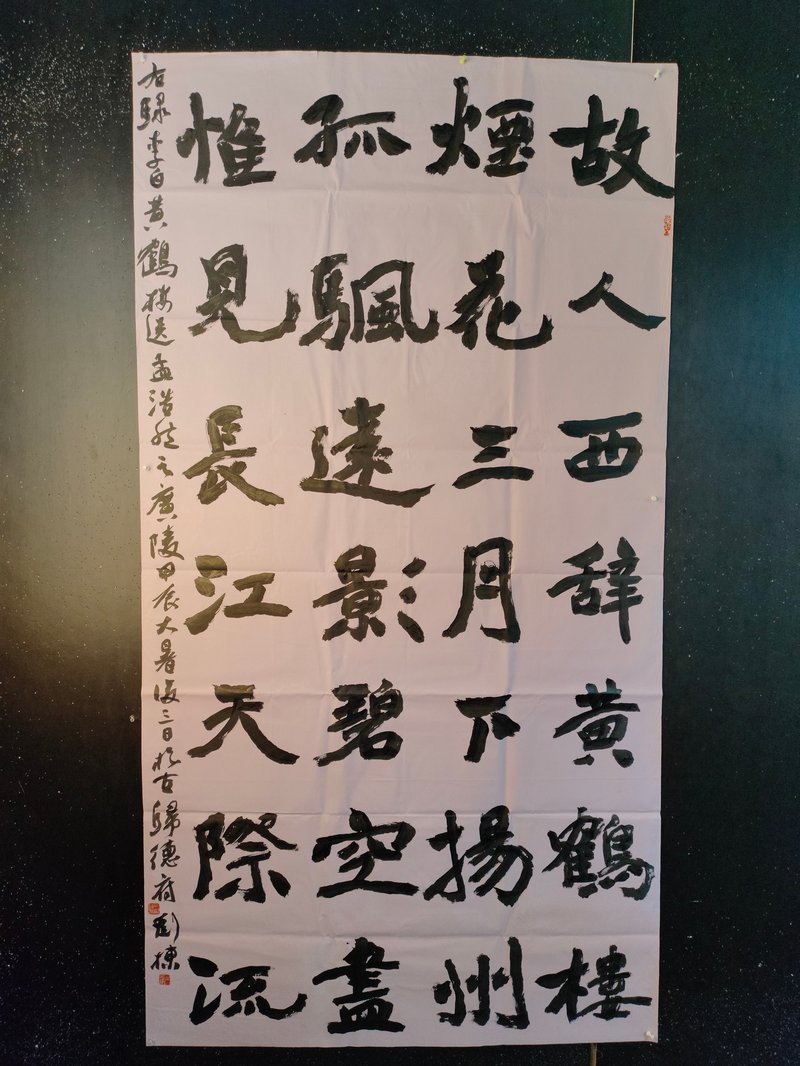 故人西辞黄鶴樓
煙花三月下揚州
孤颿遠影碧空盡
惟見長江天際流
右録李白黄鶴楼送孟浩然之廣陵甲辰大暑後三日於古歸德府劉棟